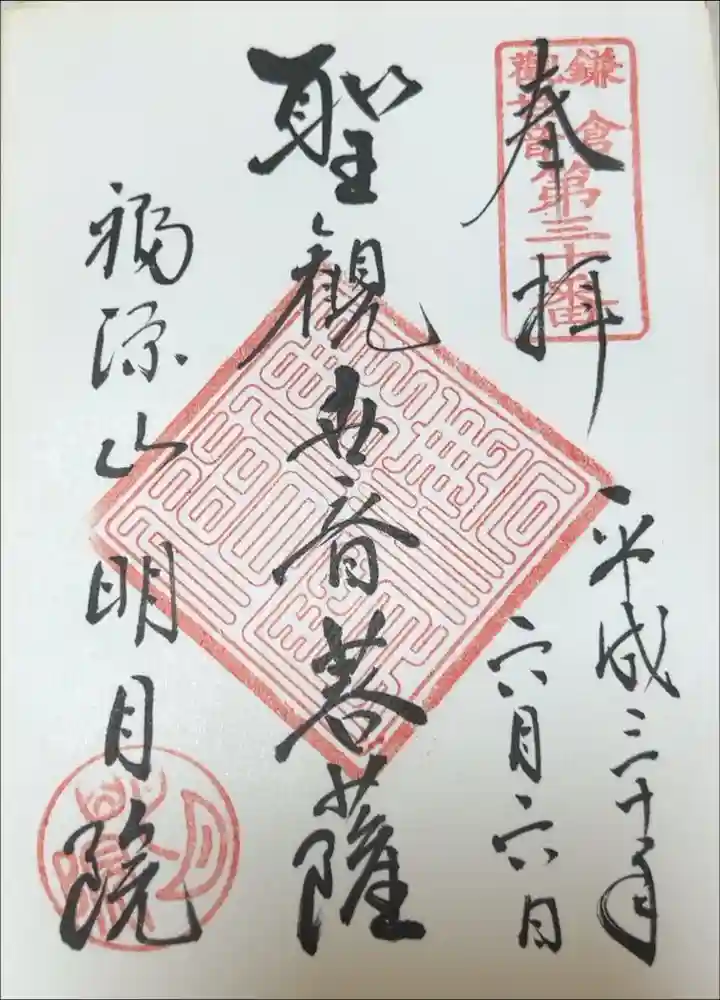 鎌倉
觀音
第三十番
奉拝
平成三十年
六月六日
聖観世音菩薩
福源山明月院